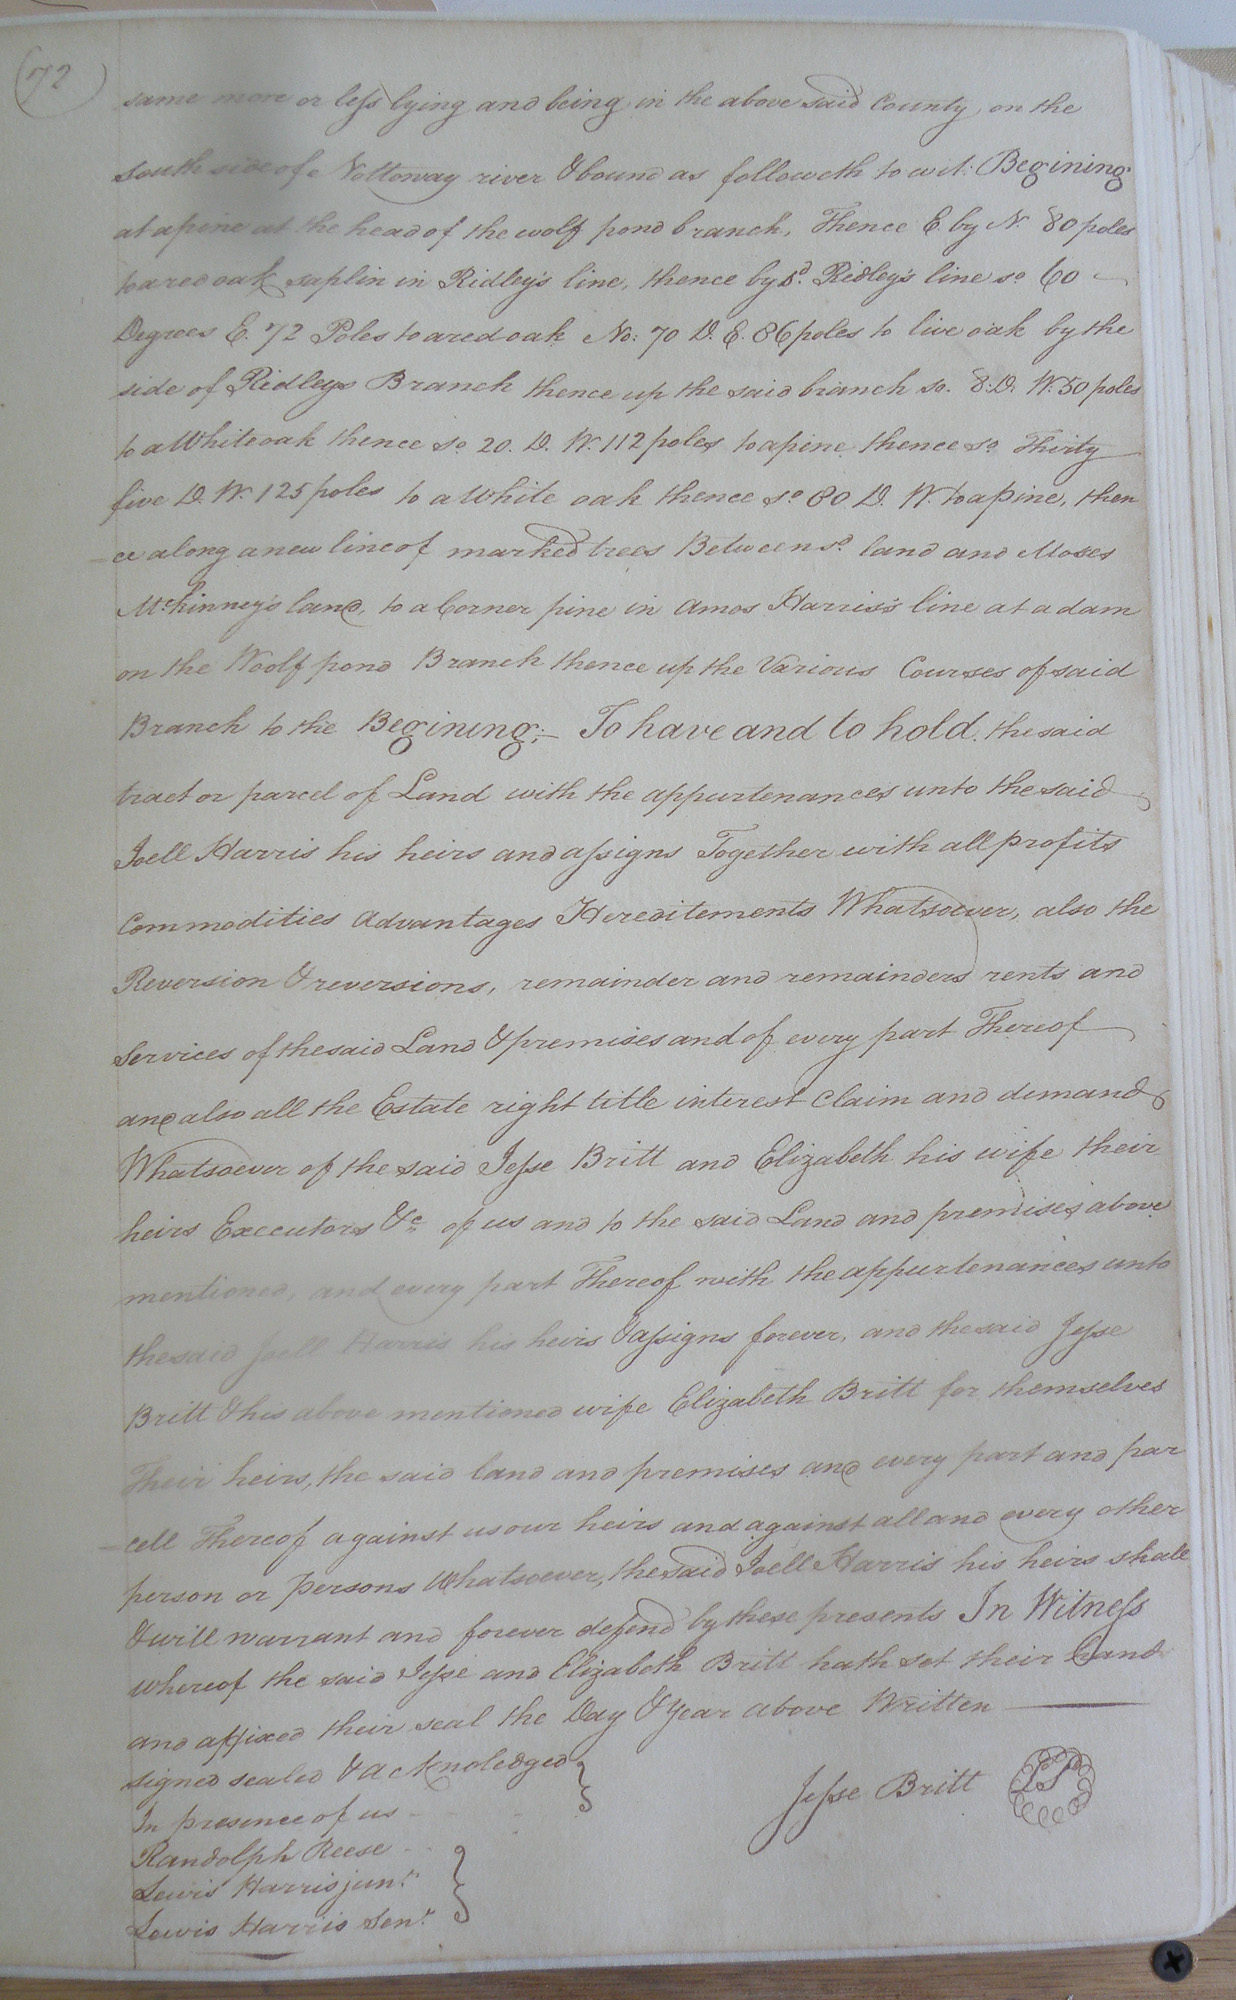 72
same more or less lying and being in the above said County, on the
south side of Nottoway river & bound as followeth to wit: Begining
at a pine at the head of the wolf pond branch, Thence E. by N. 80 poles
to a red oak saplin in Ridley's line, thence by sd. Ridley's line so. 60
Degrees E. 72 Poles to a red oak No: 70 D. E. 86 poles to live oak by the
side of Ridleys Branch thence up the said branch so. 8. D. W. 50 poles
to a White oak thence so 20. D. W. 112 poles to a pine thence so Thirty
five D. W. 125 poles to a White oak thence so 80 D. W. to a pine, then
ce along a new line of marked trees Between sd. land and Moses
McKinney's land, to a Corner pine in Amos Harris's line at a dam
on the Woolf pond Branch thence up the Various Courses of said
Branch to the Begining;— To have and to hold. the said
tract or parcel of Land with the appurtenances unto the said
Joell Harris his heirs and assigns Together with all profits
Commodities Advantages Hereditements Whatsoever, also the
Reversion & reversions, remainder and remainders rents and
Services of the said Land & premises and of every part Thereof
and also all the Estate right title interest Claim and demand
Whatsoever of the said Jesse Britt and Elizabeth his wife their
heirs Executors &c of us and to the said Land and premises above
mentioned, and every part Thereof with the appurtenances unto
the said Joell Harris his heirs & assigns forever, and the said Jesse
Britt & his above mentioned wife Elizabeth Britt for themselves
Their heirs, the said land and premises and every part and par
cell Thereof against us our heirs and against all and every other
person or persons Whatsoever, the said Joell Harris his heirs shall
& will warrant and forever defend by these presents In Witness
whereof the said Jesse and Elizabeth Britt hath set their hand
and affixed their seal the Day & Year above Written
signed sealed & acknoledged
In presence of us
Jesse Britt LS
Randolph Reese
Lewis Harris junr.
Lewis Harris Senr.